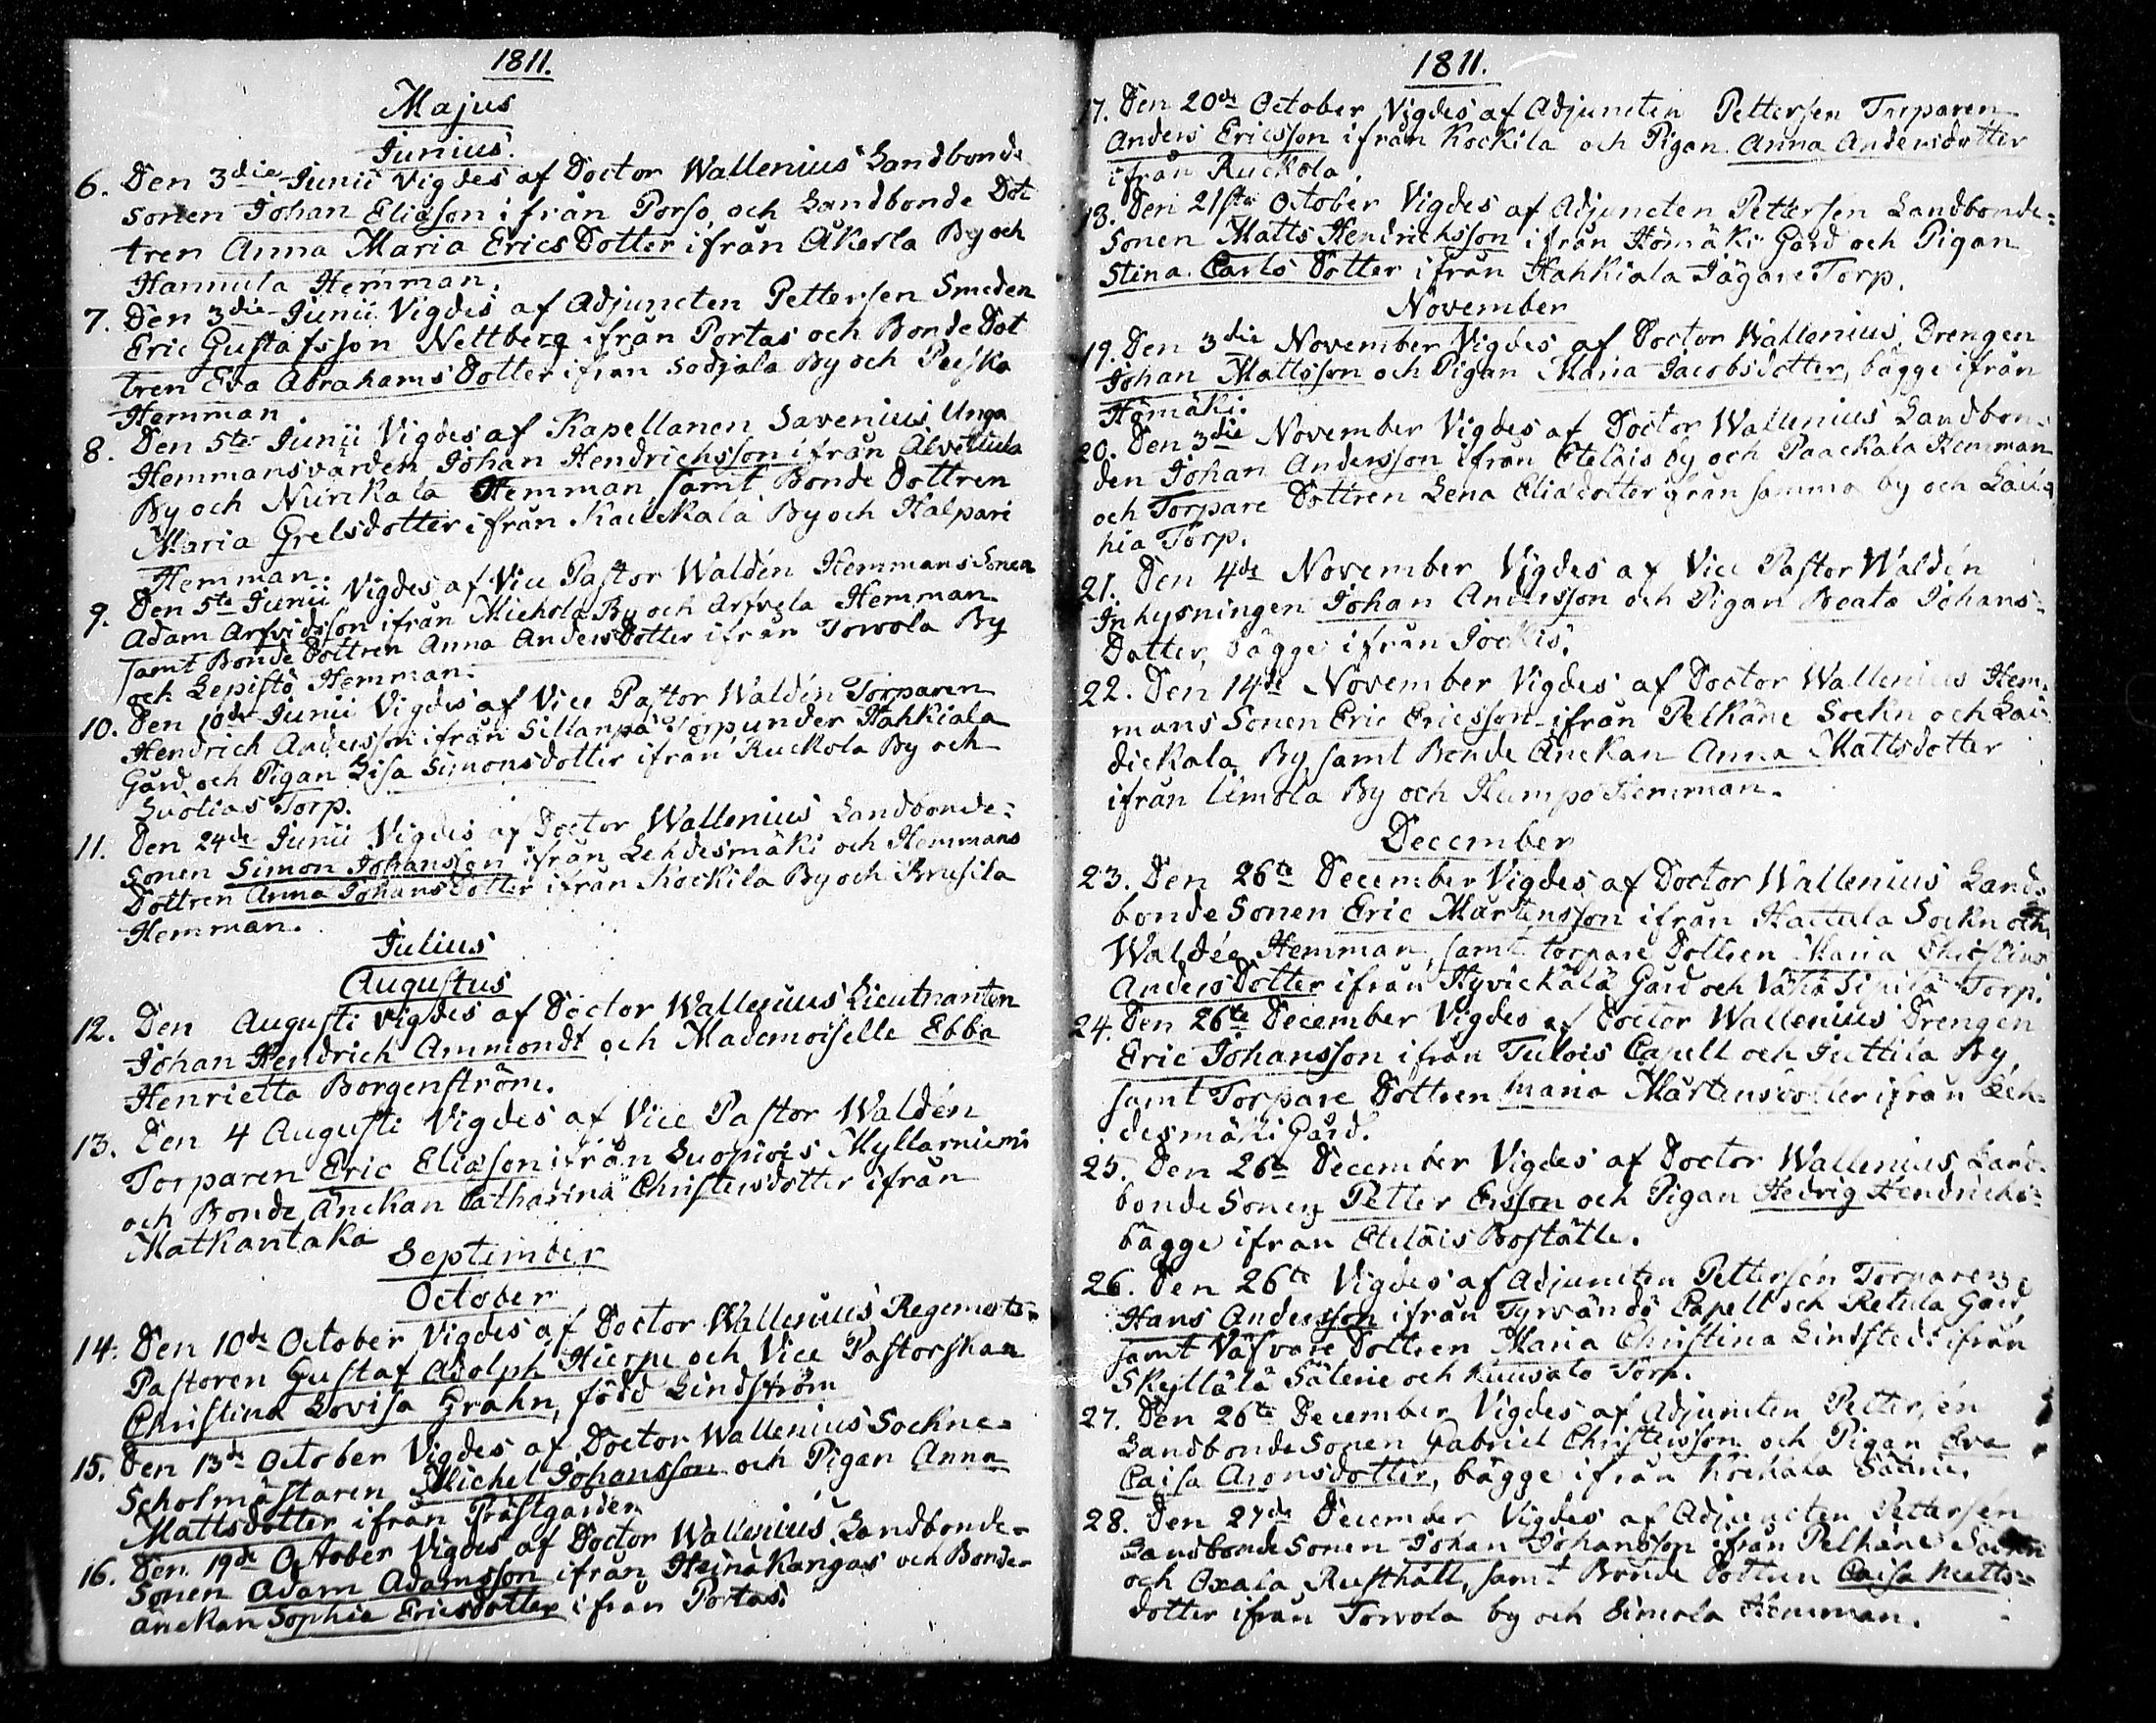 1811.
Majus
Junius.
6. Den 3die Junii Vigdes af Doctor Wallenius Landbonde
sonen Johan Eliäson ifrån Porso, och Landbonde Dot
tren Anna Maria Erics Dotter ifrån Åkerla By och
Hannula Hemman.
7. Den 3die Junii Vigdes af Adjuncten Pettersen Smeden
Eric Gustafsson Nettberg ifrån Portas och Bonde Dot
tren Eva Abrahams Dotter ifrån Sodjala By och Peiska
Hemman
8. Den 5te Junii Vigdes af Kapellanen Savenius Unga
Hemmansvärden Johan Hendrichsson ifrån Alvettula
By och Niirikala Hemman, samt Bonde Dottren
Maria Grelsdotter ifrån Kauckala By och Halpari
Hemman.
9. Den 5te Junii Vigdes af Vice Pastor Waldén Hemmans Sonen
Adam Arfvidsson ifrån Miehola By och Arfvela Hemman
samt Bonde Dottren Anna Anders Dotter ifrån Torvola By
och Lepistö Hemman.
10. Den 10de Junii Vigdes af Vice Pastor Waldén Torparen
Hendrich Andersson ifrån Sillanpä Torp under Hahkiala
Gård och Pigan Lisa Simonsdotter ifrån Ruckola By och
Suotias Torp.
11. Den 24de Junii Vigdes af Doctor Wallenius Landbonde-
Sonen Simon Johansson ifrån Lehdesmäki och Hemmans
Dottren Anna Johans Dotter ifrån Kockila By och Krusila
Hemman.
Julius
Augustus
12. Den Augusti Vigdes af Doctor Wallenius Lieutnanten
Johan Hendrich Ammondt och Mademoiselle Ebba
Henrietta Borgenström.
13. Den 4 Augusti Vigdes af Vice Pastor Waldén
Torparen Eric Eliäson ifrån Luopiois Myllarniemi
och Bonde Änckan Catharina Christersdotter ifrån
Matkantaka
September
October
14. Den 10de October Vigdes af Doctor Wallenius Regements-
Pastoren Gustaf Adolph Hierpe och Vice Pastorskan
Christina Lovisa Grahn, född Lindström
15. Den 13de October Vigdes af Doctor Wallenius Sockne-
Scholmästaren Michel Johansson och Pigan Anna
Mattsdotter ifrån Prästgården
16. Den 19de October Vigdes af Doctor Wallenius Landbonde-
Sonen Adam Adamsson ifrån Heinäkangas och Bonde-
änckan Sophia Ericsdotter ifrån Portas.
1811.
17. Den 20de October Vigdes af Adjuncten Pettersen Torparen
Anders Ericsson ifrån Kockila och Pigan Anna Andersdotter
ifrån Ruckola.
18. Den 21sta October Vigdes af Adjuncten Pettersen Landbonde-
Sonen Matts Hendrichsson ifrån Hömäki Gård och Pigan
Stina Carls Dotter ifrån Hahkiala Jägare Torp.
November
19. Den 3die November Vigdes af Doctor Wallenius, Drengen
Johan Mattsson och Pigan Maria Jacobsdotter, bägge ifrån
Hömäki.
20. Den 3die November Vigdes af Doctor Wallenius Landbon-
den Johan Andersson ifrån Eteläis by och Paackala Hemman
och Torpare Dottren Lena Eliädotter ifrån samma by och
hia Torp.
21. Den 4de November Vigdes af Vice Pastor Waldén
Inhysningen Johan Andersson och Pigan Beata Johans-
Dotter, bägge ifrån Jockis.
22. Den 14de November Vigdes af Doctor Wallenius Hem-
mans Sonen Eric Ericsson ifrån Pelkäne Sockn och Lai-
dickala By, samt Bonde Änckan Anna Mattsdotter
ifrån Uimola By och Humpo Hemman.
December
23. Den 26te December Vigdes af Doctor Wallenius Land-
bonde Sonen Eric Mårtensson ifrån Hattula Sockn och
Hemman, samt torpare Dottren Maria Christina
Anders Dotter ifrån Hyvickälä Gård och Vähä Sipilä Torp.
24. Den 26te December Vigdes af Doctor Wallenius Drengen
Eric Johansson ifrån Tulois Capell och Juttila By
samt Torpare Dottren Maria Mårtensdotter ifrån Leh-
desmäki Gård.
25. Den 26te December Vigdes af Doctor Wallenius Land-
bonde Sonen Petter Ersson och Pigan Hedvig Hendrichs-
bägge ifrån Eteläis Boställe.
26. Den 26te Vigdes af Adjuncten Pettersén Torparen
Hans Andersson ifrån Tyrvändö Capell och Retula Gård
samt Väfvare Dottren Maria Christina Lindstedt ifrån
Skyttälä Säterie och Kuusisto Torp.
27. Den 26te December Vigdes af Adjuncten Pettersén
Landbonde Sonen Gabriel Christersson och Pigan Eva
Caisa Aronsdotter, bägge ifrån Säterie.
28. Den 27de December Vigdes af Adjuncten Pettersén
Landbonde Sonen Johan Johansson ifrån Pelkäne Sockn
och Oxala Rusthåll, samt Bonde Dottren Caisa Matts-
dotter ifrån Torvola by och Simola Hemman.